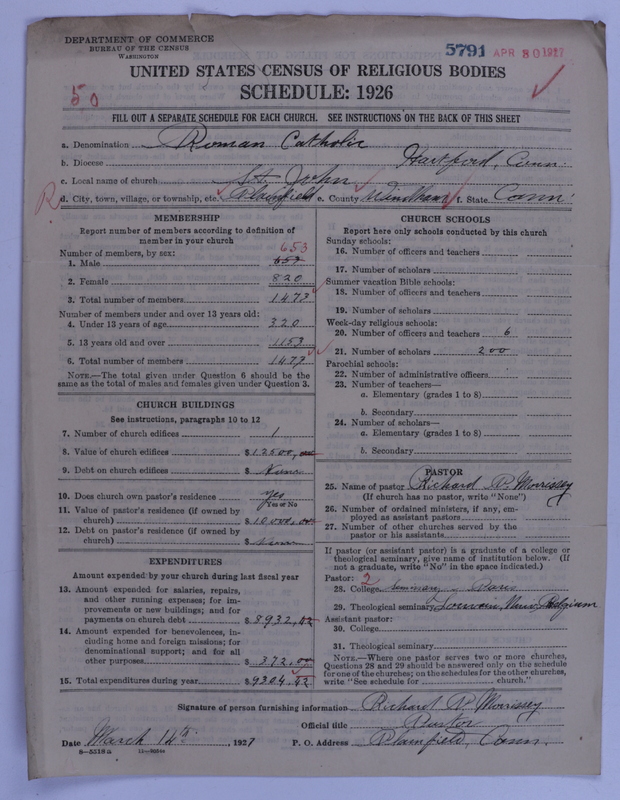 DEPARTMENT OF COMMERCE
BUREAU OF THE CENSUS
WASHINGTON
5791 APR 30 1927
UNITED STATES CENSUS OF RELIGIOUS BODIES
SCHEDULE: 1926
50
FILL OUT A SEPARATE SCHEDULE FOR EACH CHURCH. SEE INSTRUCTIONS ON THE BACK OF THIS SHEET
a. Denomination Roman Catholic
b. Diocese Hartford, Conn.
c. Local name of church St. John
R d. City, town, village, or township, etc. Plainfield e. County Windham f. State Conn.
MEMBERSHIP
Report number of members according to definition of
member in your church
Number of members, by sex: 653
1. Male 653
2. Female 820
3. Total number of members 1473
Number of members under and over 13 years old:
4. Under 13 years of age 320
5. 13 years old and over 1153
6. Total number of members 1473
NOTE.—The total given under Question 6 should be the
same as the total of males and females given under Question 3.
CHURCH BUILDINGS
See instructions, paragraphs 10 to 12
7. Number of church edifices 1
8. Value of church edifices $12500.00
9. Debt on church edifices $ None
10. Does church own pastor's residence yes
Yes or No
11. Value of pastor's residence (if owned by
church) $10,000.00
12. Debt on pastor's residence (if owned by
church) $ None
EXPENDITURES
Amount expended by your church during last fiscal year
13. Amount expended for salaries, repairs,
and other running expenses; for im-
provements or new buildings; and for
payments on church debt $8932.42
14. Amount expended for benevolences, in-
cluding home and foreign missions; for
denominational support; and for all
other purposes $372.00
15. Total expenditures during year $9304.42
CHURCH SCHOOLS
Report here only schools conducted by this church
Sunday schools:
16. Number of officers and teachers
17. Number of scholars
Summer vacation Bible schools:
18. Number of officers and teachers
19. Number of scholars
Week-day religious schools:
20. Number of officers and teachers 6
21. Number of scholars 200
Parochial schools:
22. Number of administrative officers
23. Number of teachers—
a. Elementary (grades 1 to 8)
b. Secondary
24. Number of scholars—
a. Elementary (grades 1 to 8)
b. Secondary
PASTOR
25. Name of pastor Richard P. Morrissey
(If church has no pastor, write "None")
26. Number of ordained ministers, if any, em-
ployed as assistant pastors
27. Number of other churches served by the
pastor or his assistants
If pastor (or assistant pastor) is a graduate of a college or
theological seminary, give name of institution below. (If
not a graduate, write "No" in the space indicated.)
Pastor: 2
28. College Seminary Paris
29. Theological seminary Louvain, Univ. Belgium
Assistant pastor:
30. College
31. Theological seminary
NOTE.—Where one pastor serves two or more churches,
Questions 28 and 29 should be answered only on the schedule
for one of the churches; on the schedules for the other churches,
write "See schedule for church."
Signature of person furnishing information Richard P. Morrissey
Official title Pastor
Date March 14th, 1927 P. O. Address Plainfield, Conn.
8—5518a